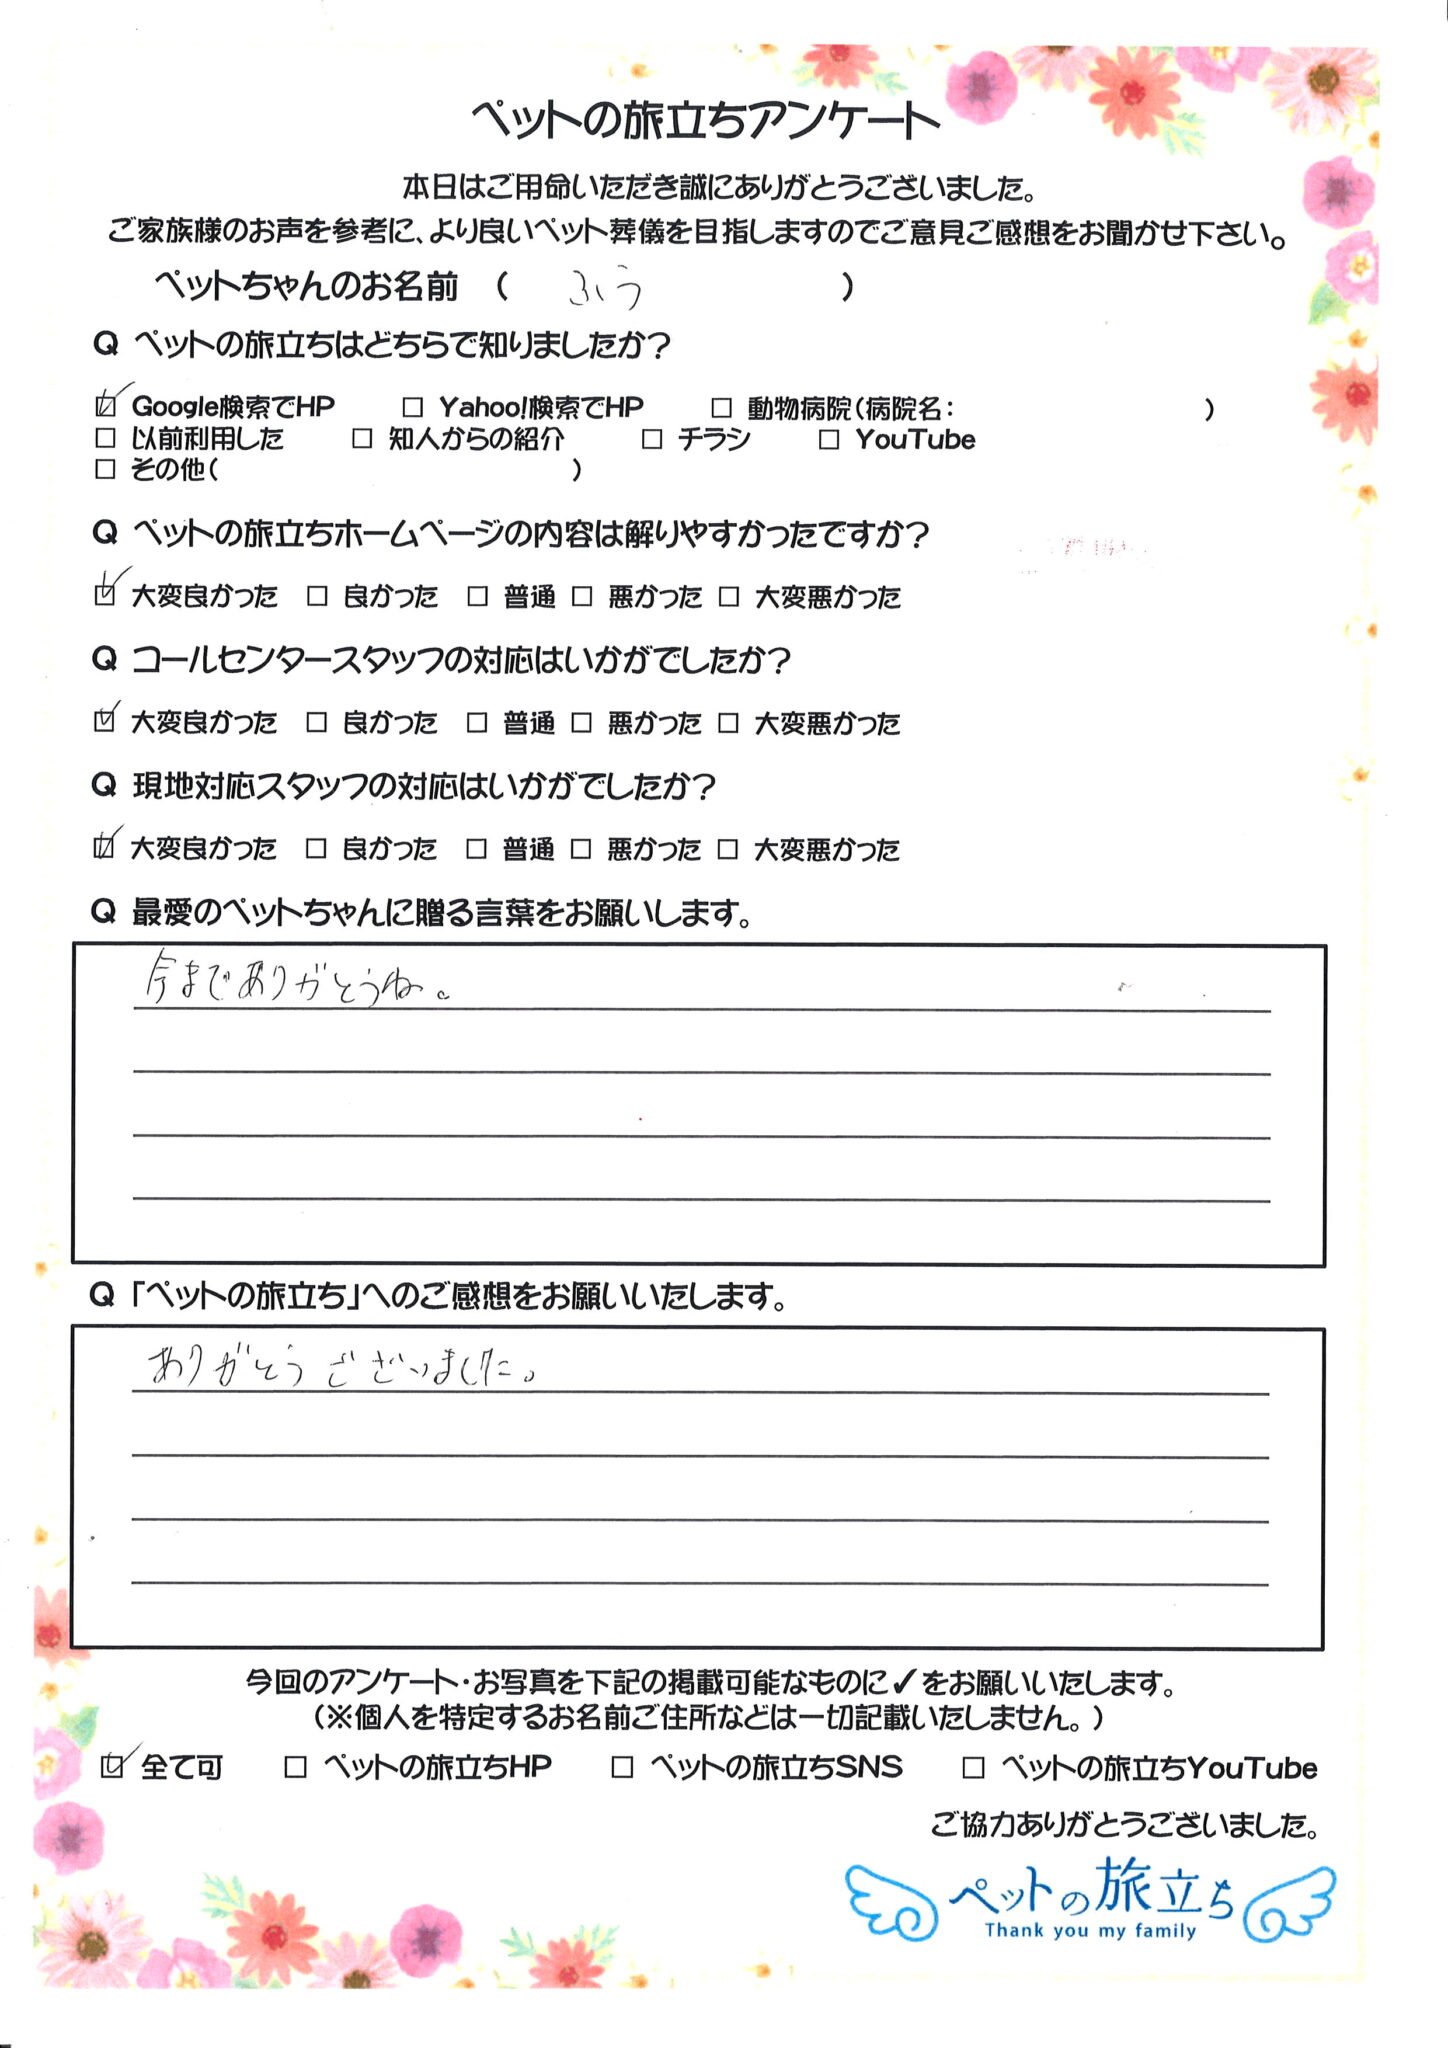 ペットの旅立ちアンケート
本日はご用命いただき誠にありがとうございました。
ご家族様のお声を参考に、より良いペット葬儀を目指しますのでご意見ご感想をお聞かせ下さい。
ペットちゃんのお名前 ( ふう )
Q ペットの旅立ちはどちらで知りましたか?
☑ Google検索でHP □ Yahoo!検索でHP □ 動物病院(病院名: )
□ 以前利用した □ 知人からの紹介 □ チラシ □ YouTube
□ その他( )
Q ペットの旅立ちホームページの内容は解りやすかったですか?
☑ 大変良かった □ 良かった □ 普通 □ 悪かった □ 大変悪かった
Q コールセンタースタッフの対応はいかがでしたか?
☑ 大変良かった □ 良かった □ 普通 □ 悪かった □ 大変悪かった
Q 現地対応スタッフの対応はいかがでしたか?
☑ 大変良かった □ 良かった □ 普通 □ 悪かった □ 大変悪かった
Q 最愛のペットちゃんに贈る言葉をお願いします。
今までありがとうね。
Q 「ペットの旅立ち」へのご感想をお願いいたします。
ありがとうございました。
今回のアンケート・お写真を下記の掲載可能なものに✓をお願いいたします。
(※個人を特定するお名前ご住所などは一切記載いたしません。)
☑ 全て可 □ ペットの旅立ちHP □ ペットの旅立ちSNS □ ペットの旅立ちYouTube
ご協力ありがとうございました。
ペットの旅立ち
Thank you my family